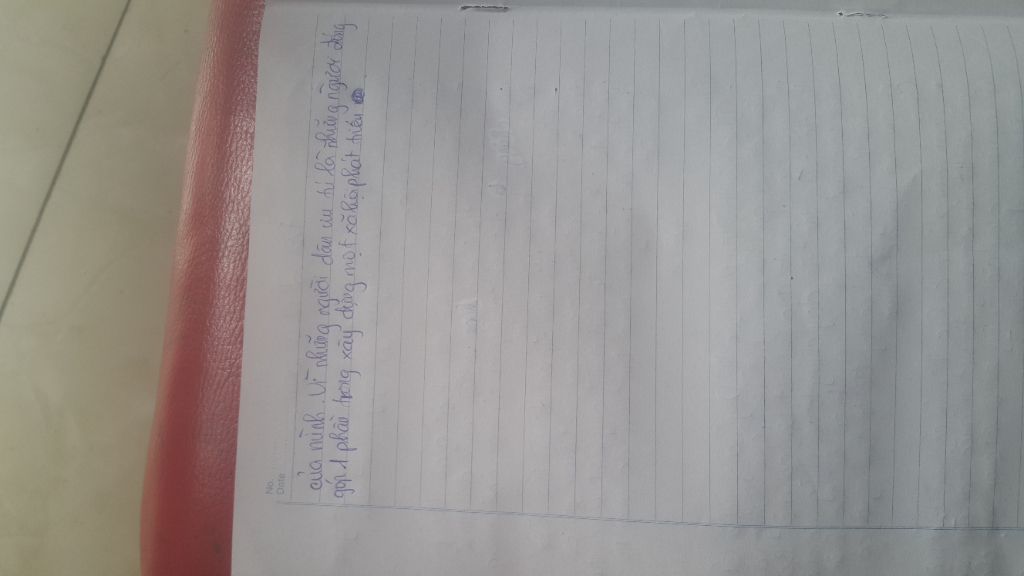 No.
Date
của mình. Vì những người dân ưu tú là những người đóng
góp 1 phần trong xây dựng một xã hội phát triển